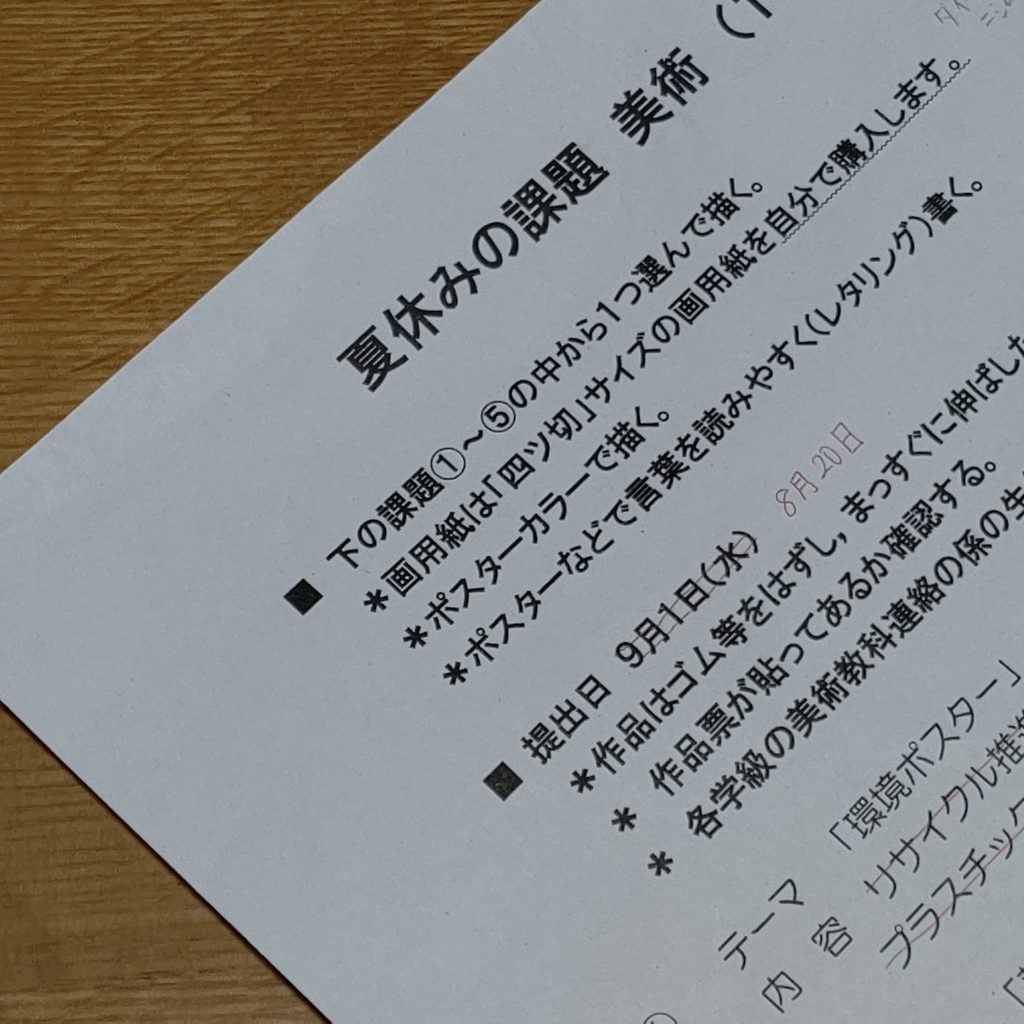 夏休みの課題 美術（1
■ 下の課題①～⑤の中から1つ選んで描く。
＊画用紙は「四ツ切」サイズの画用紙を自分で購入します。
＊ポスターカラーで描く。
＊ポスターなどで言葉を読みやすく（レタリング）書く。
8月20日
■ 提出日 9月1日（水）
＊作品はゴム等をはずし，まっすぐに伸ばした
＊ 作品票が貼ってあるか確認する。
＊ 各学級の美術教科連絡の係の生
テーマ 「環境ポスター」
内 容 リサイクル推進
プラスチック